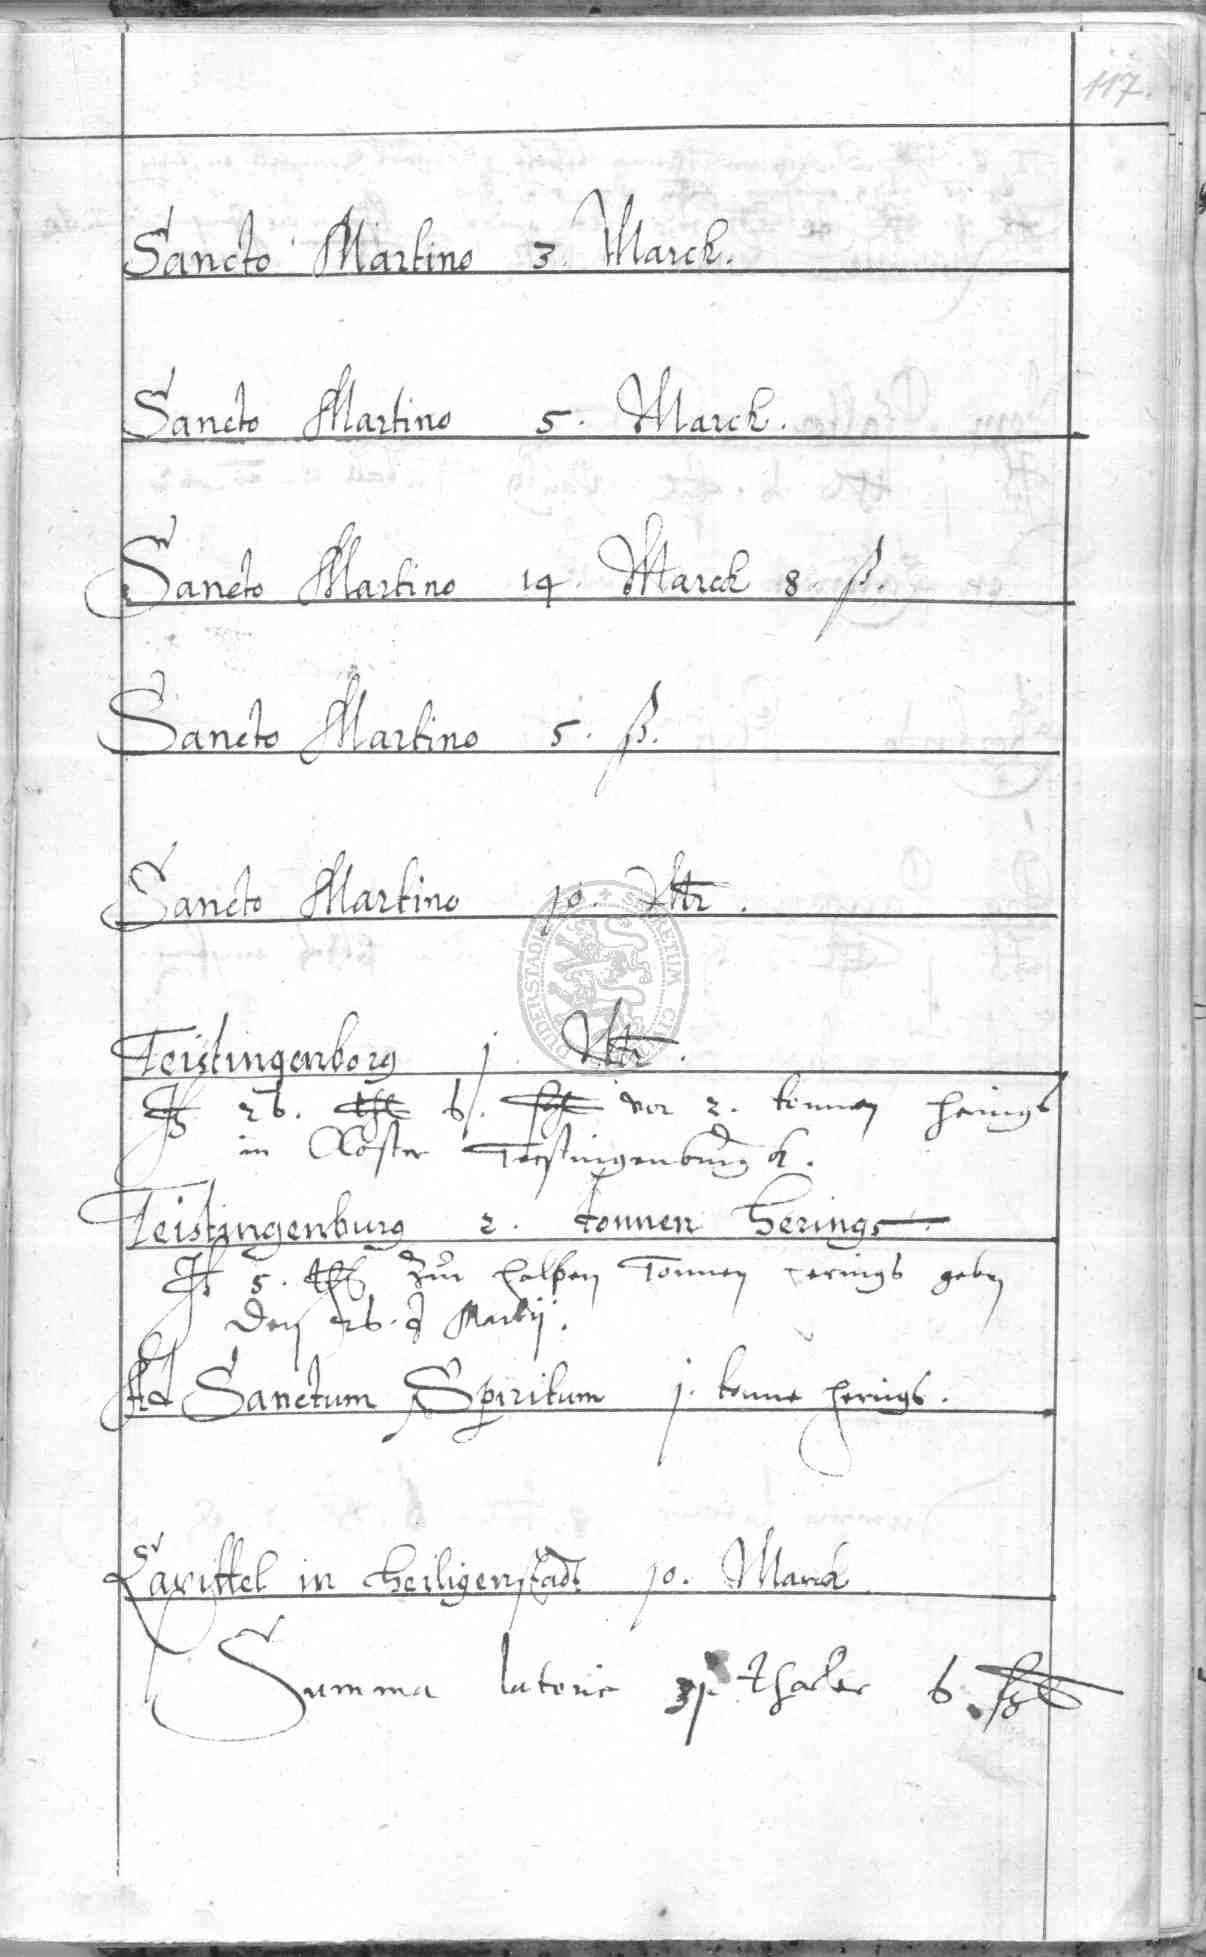 117.
Sancto Martino 3. Marck.
Sancto Martino 5. Marck.
Sancto Martino 14. Marck 8. ß.
Sancto Martino 5. ß.
Sancto Martino 10.
Teistingenborg j
26. 6. vor 2. tonnen herings
in Closter Teistingenburgk.
Teistingenburg 2. tonnen Herings
5. zur halben Tonnen herings geben
den 26. Martij.
Ad Sanctum Spiritum j. tonne herings.
Capittel in Heiligenstadt 10. Marck
Summa lateris 31 thaler 6.